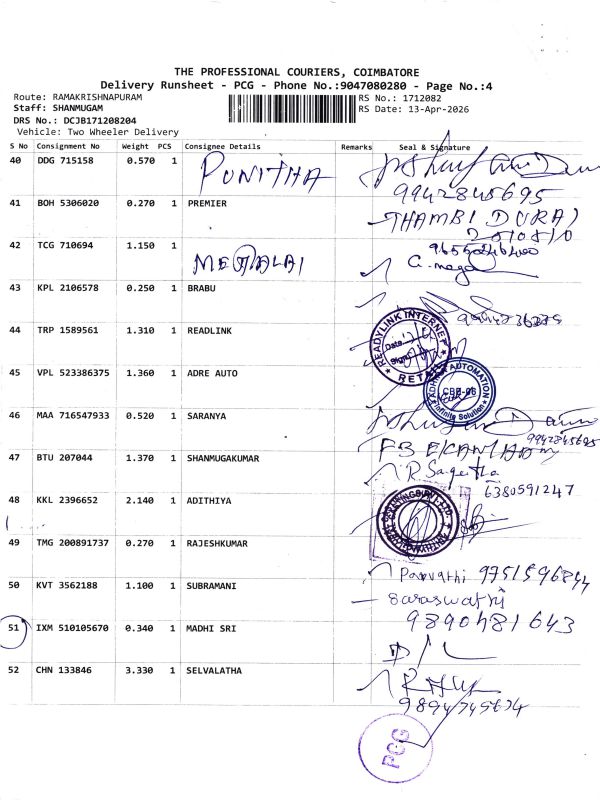 THE PROFESSIONAL COURIERS, COIMBATORE
Delivery Runsheet - PCG - Phone No.:9047080280 - Page No.:4
Route: RAMAKRISHNAPURAM
RS No.: 1712082
Staff: SHANMUGAM
RS Date: 13-Apr-2026
DRS No.: DCJB171208204
Vehicle: Two Wheeler Delivery
S No Consignment No Weight PCS Consignee Details Remarks Seal & Signature
40 DDG 715158 0.570 1 PUNITHA
9942845695
41 BOH 5306020 0.270 1 PREMIER
THAMBI DURAI
42 TCG 710694 1.150 1
MEGALAI
43 KPL 2106578 0.250 1 BRABU
44 TRP 1589561 1.310 1 READLINK
READYLINK INTERNET
Date
Sign
RETAIL
45 VPL 523386375 1.360 1 ADRE AUTO
AUTOMATION
CBE-06
Infinite Solution
46 MAA 716547933 0.520 1 SARANYA
9942845695
47 BTU 207044 1.370 1 SHANMUGAKUMAR
R. Sageetha
6380591247
48 KKL 2396652 2.140 1 ADITHIYA
49 TMG 200891737 0.270 1 RAJESHKUMAR
Parvathi 9751596844
50 KVT 3562188 1.100 1 SUBRAMANI
Saraswathi
51 IXM 510105670 0.340 1 MADHI SRI
52 CHN 133846 3.330 1 SELVALATHA
PCG